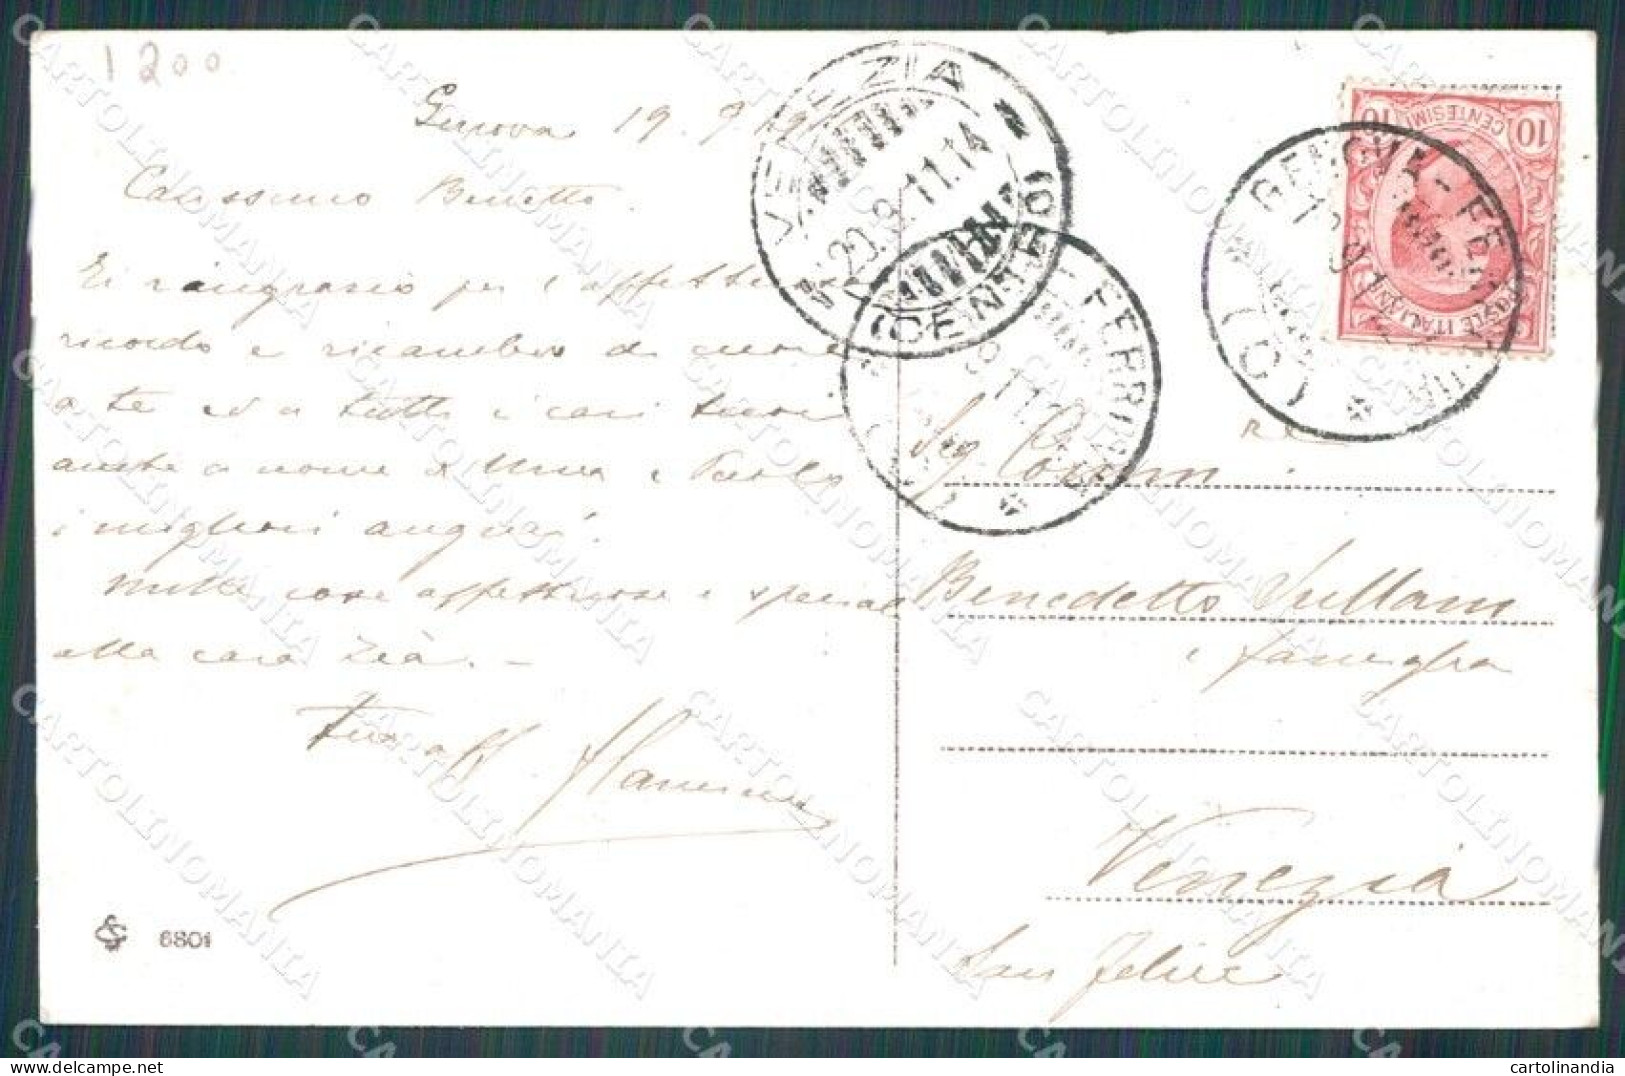 1200
Genova 19. 9
Carissimo Benetto.
Ti ringrazio per l'affettuoso
ricordo e ricambio di cuore
a te ed a tutti i cari tuoi
anche a nome di e
i migliori auguri!
Mille cose affettuose e speciali
alla cara Zia. –
tuo aff
6801
VENEZIA
20.9.11.14
(CENTRO)
FERROVIA
GENOVA-FERROVIA
10 10
CENTESIMI
POSTE ITALIANE
Sig.
Benedetto Sullam
e famiglia
Venezia
San Felice
CARTOLINOMANIA
cartolinandia